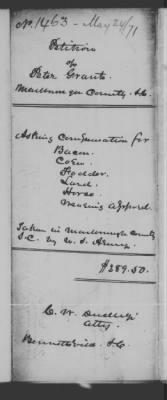 No. 1463 - May 24/71
Petition
of
Peter Grant
Marlborough County S.C.
Asking Compensation for
Bacon.
Corn.
Fodder.
Lard.
Horse.
Wearing Apparel.
Taken in Marlborough County
S.C. by U.S. Army.
$289.50.
C. W. Dudley
Atty
Bennettsville S.C.